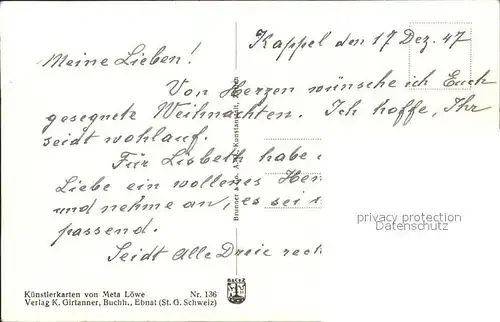 Kappel den 17 Dez. 47
Meine Lieben!
Von Herzen wünsche ich Euch
gesegnete Weihnachten. Ich hoffe, Ihr
seidt wohlauf.
Für Lisbeth habe
Liebe ein wollenes
und nehme an, es sei
passend.
Seidt Alle Dreie
privacy protection
Datenschutz
Brunner & Co. A.G. Kunstanstalt, Zürich
Künstlerkarten von Meta Löwe Nr. 136
Verlag K. Girtanner, Buchh., Ebnat (St. G. Schweiz)